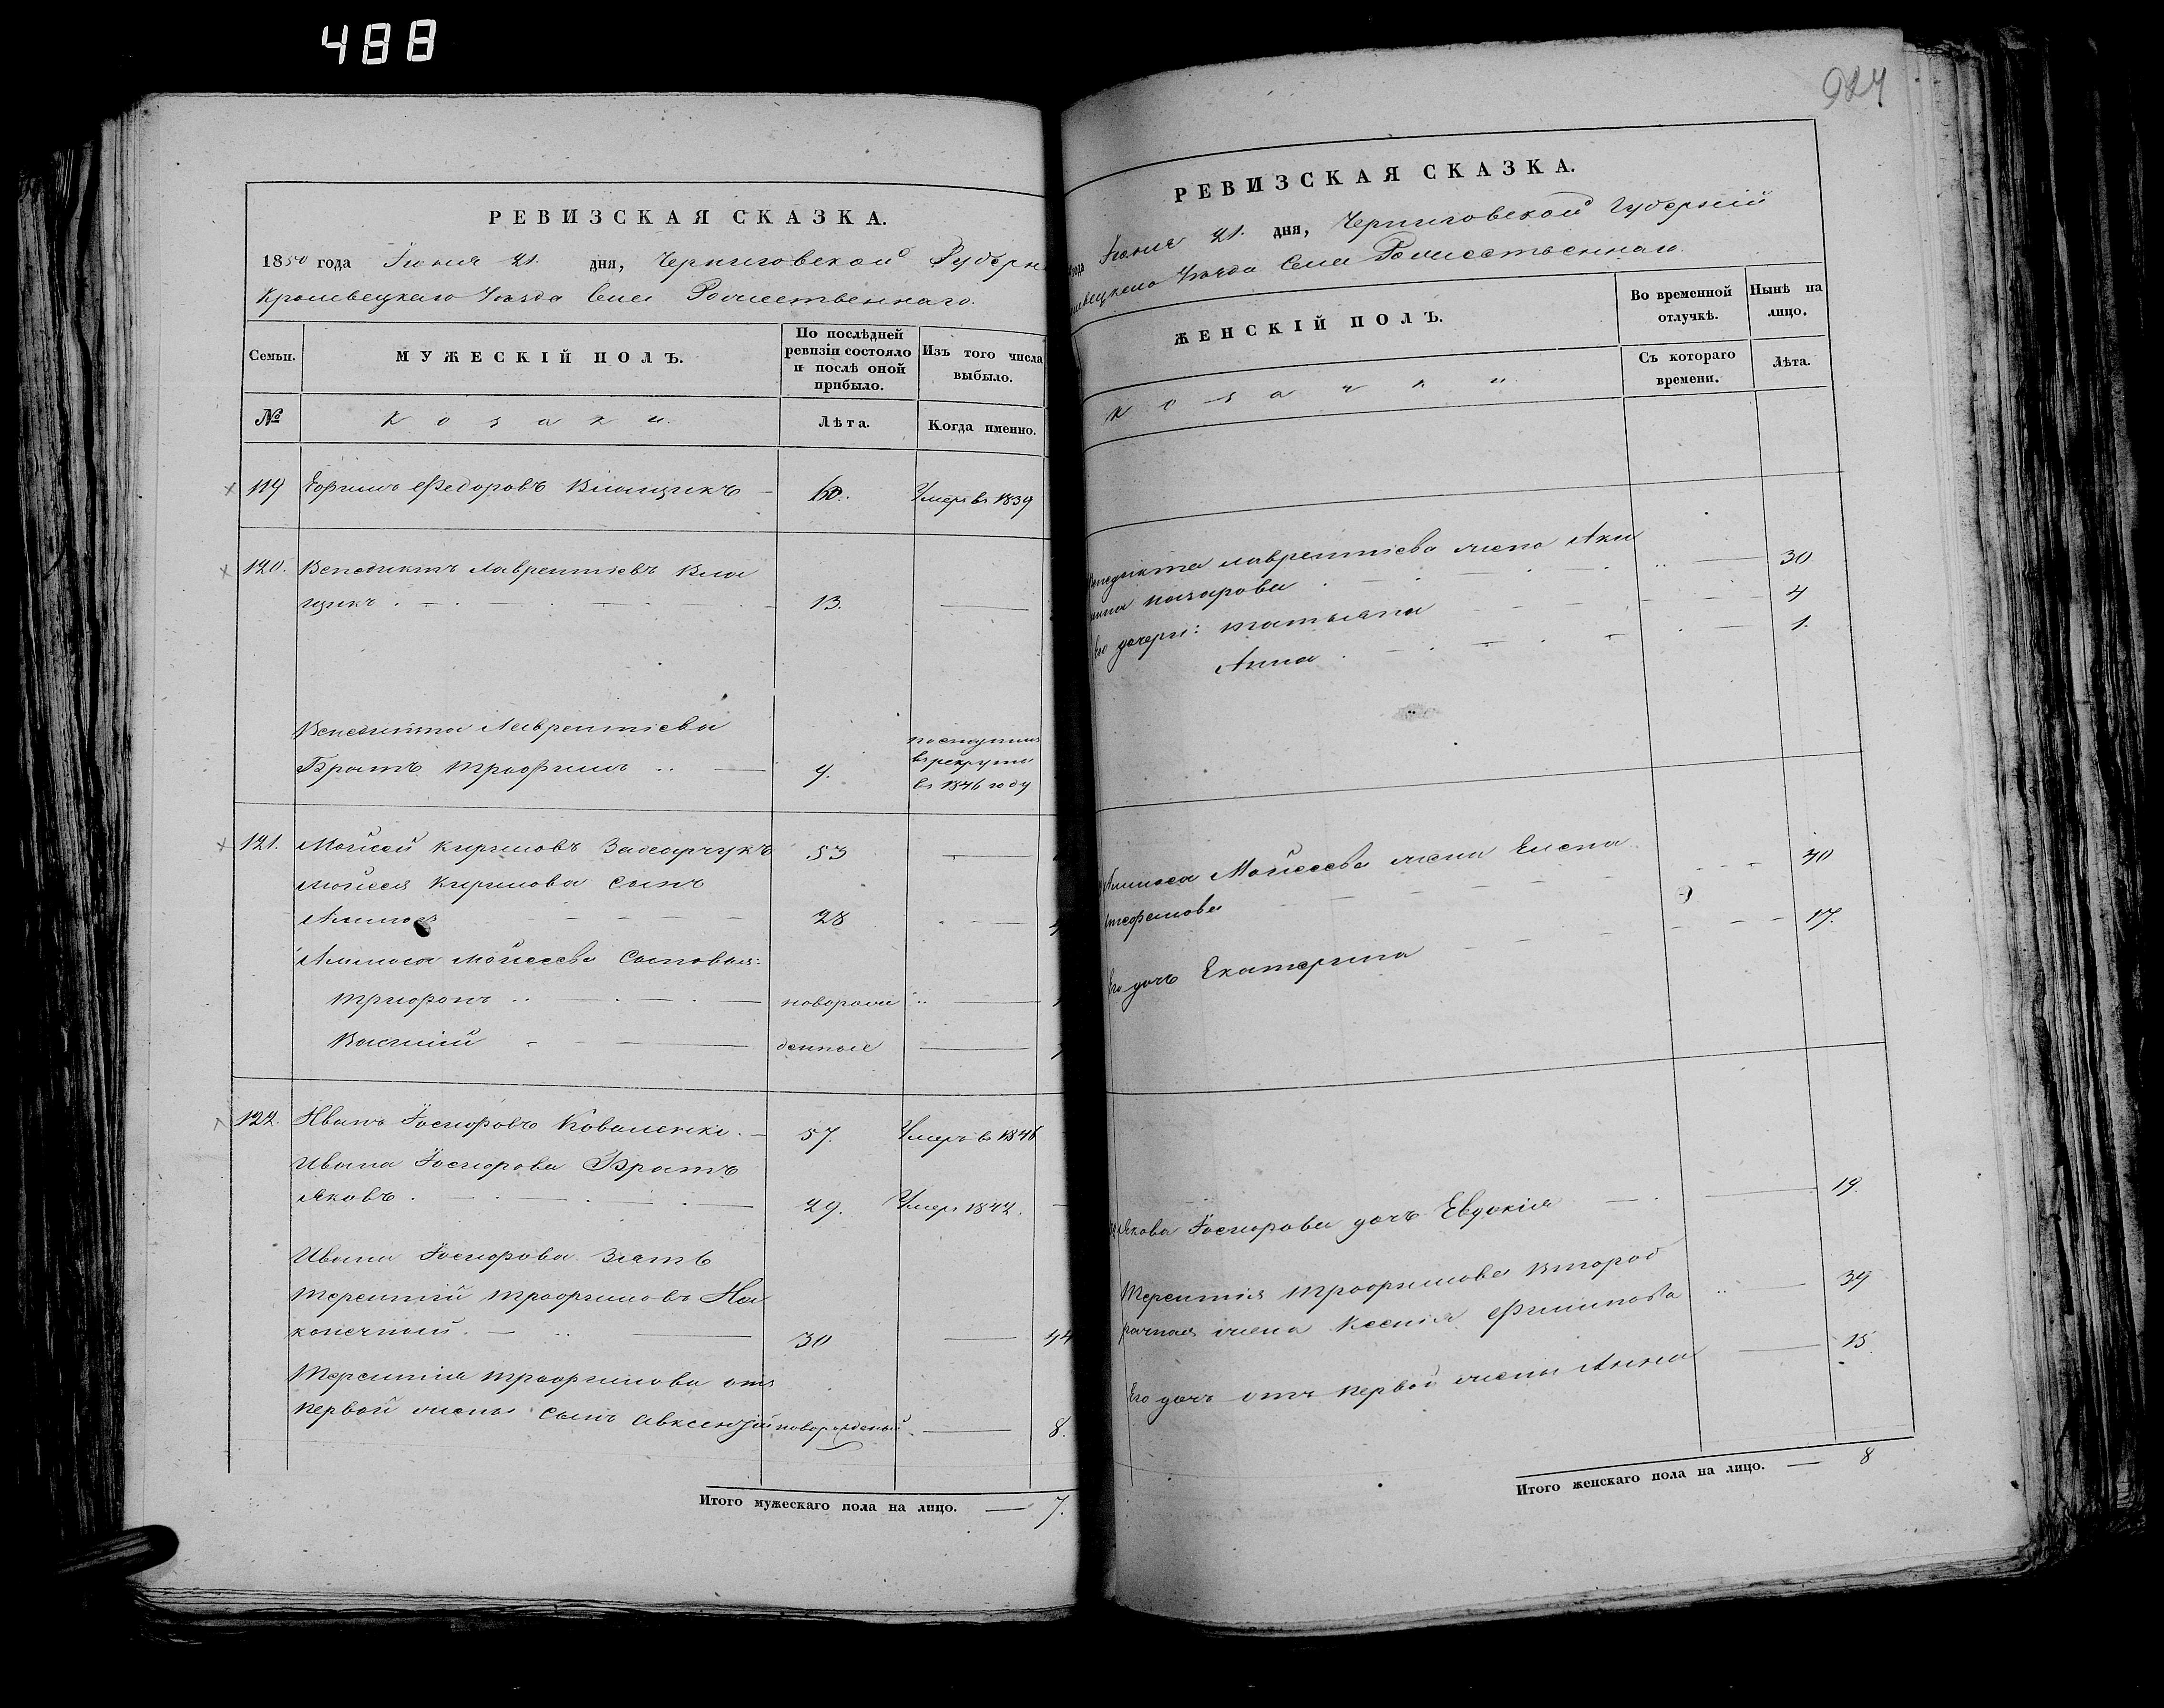 488
РЕВИЗСКАЯ СКАЗКА.
1850 года Іюня 21. дня, Черниговской Губерн
Кролевецкаго Уѣзда Села Рожественнаго.
Семьи.
МУЖЕСКІЙ ПОЛЪ.
По послѣдней ревизіи состояло и послѣ оной прибыло.
Изъ того числа выбыло.
№
Козаки.
Лѣта.
Когда именно.
119 Ефимъ Федоровъ 60. Умеръ въ 1839
120. Венедиктъ Лаврентіевъ Кла
щикъ 13.
Венедикта Лаврентіева
Братъ Трофимъ 9. поступилъ
въ рекруты
въ 1846 году
121. Мойсей Кириловъ 53
Мойсея Кирилова сынъ
28
Мойсеева Сыновья:
Трифонъ новорож
Василій денные
122. Иванъ Іосифовъ Коваленко 57. Умеръ въ 1846
Ивана Іосифова Братъ
Яковъ 29. Умеръ 1842.
Ивана Іосифова Зять
Терентій Трофимовъ На
конечный 30 44
Терентія Трофимова отъ
первой жены сынъ Авксентій новорожденый 8.
Итого мужескаго пола на лицо. 7.
924
РЕВИЗСКАЯ СКАЗКА.
года Іюня 21. дня, Черниговской Губерніи
Уѣзда Села Рожественнаго
ЖЕНСКІЙ ПОЛЪ.
Во временной отлучкѣ.
Нынѣ на лицо.
Козачки
Съ котораго времени.
Лѣта.
Венедикта Лаврентіева жена Аки
лина Назарова 30
Его дочери: Татьяна 4
Анна 1.
Мойсеева жена Елена 40
Его дочь Екатерина 17.
Якова Іосифова дочь Евдокія 19.
Терентія Трофимова второб
рачная жена Ксенія Филипова 39
Его дочь отъ первой жены Анна 15.
Итого женскаго пола на лицо. 8